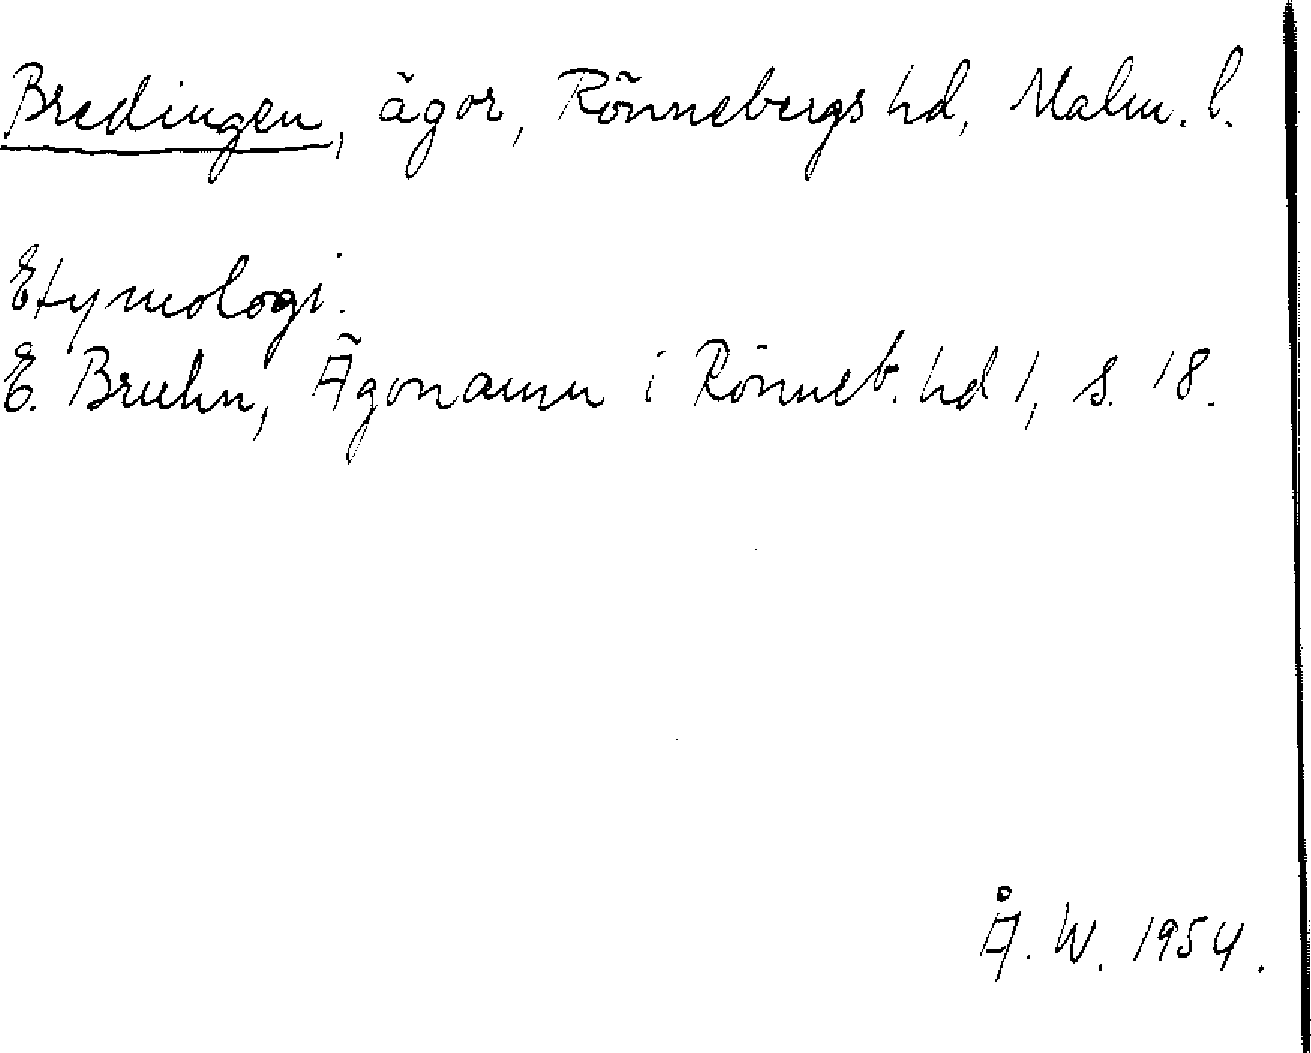 Bredingen, ägor, Rönnebergs hd, Malm. l.
Etymologi.
E. Bruhn, Ägonamn i Rönneb. hd 1, s. 18.
Å. W. 1954.